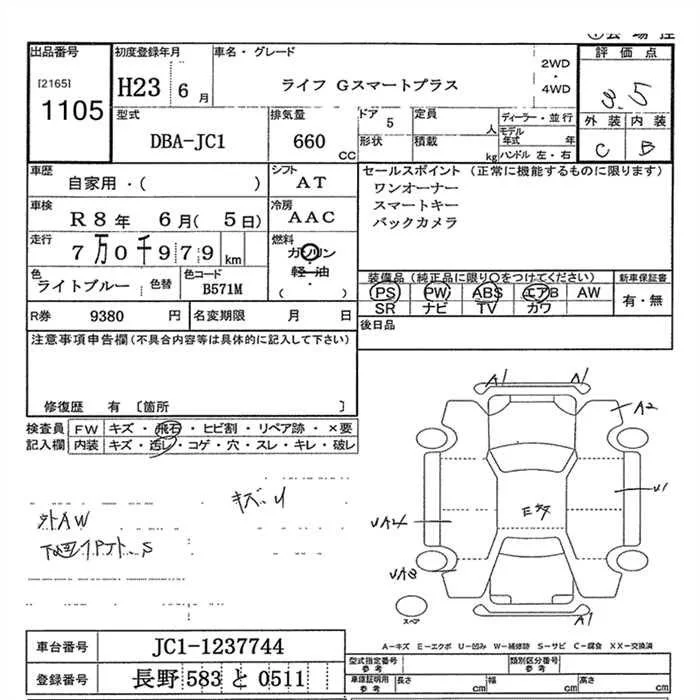 出品番号
[2165]
1105
初度登録年月
H23 6月
車名・グレード
ライフ Gスマートプラス
2WD
・
4WD
評価点
3.5
外装 内装
C B
型式
DBA-JC1
排気量
660 CC
ドア 5
定員 人
形状
積載 kg
ディーラー・並行
モデル年式 年
ハンドル 左・右
車歴
自家用・( )
シフト
AT
車検
R8年 6月( 5日)
冷房
AAC
走行
7万0千979 km
燃料
ガソリン
軽油
・
( )
色
ライトブルー
色替
色コード
B571M
セールスポイント (正常に機能するものに限ります)
ワンオーナー
スマートキー
バックカメラ
装備品(純正品に限り○をつけてください)
新車保証書
PS PW ABS エアB AW
SR ナビ TV カワ
有・無
R券 9380 円
名変期限 月 日
後日品
注意事項申告欄(不具合内容等は具体的に記入して下さい)
修復歴 有 〔箇所 〕
検査員 FW キズ・飛石・ヒビ割・リペア跡・×要
記入欄 内装 キズ・汚レ・コゲ・穴・スレ・キレ・破レ
外AW
A1 A1
A2
U1
UA2
UA3
A1
スペア
A-キズ E-エクボ U-凹み W-補修跡 S-サビ C-腐食 XX-交換済
車台番号
JC1-1237744
登録番号
長野 583 と 0511
型式指定番号
参考
類別区分番号
参考
車庫証明用
参考
長さ cm
幅 cm
高さ cm